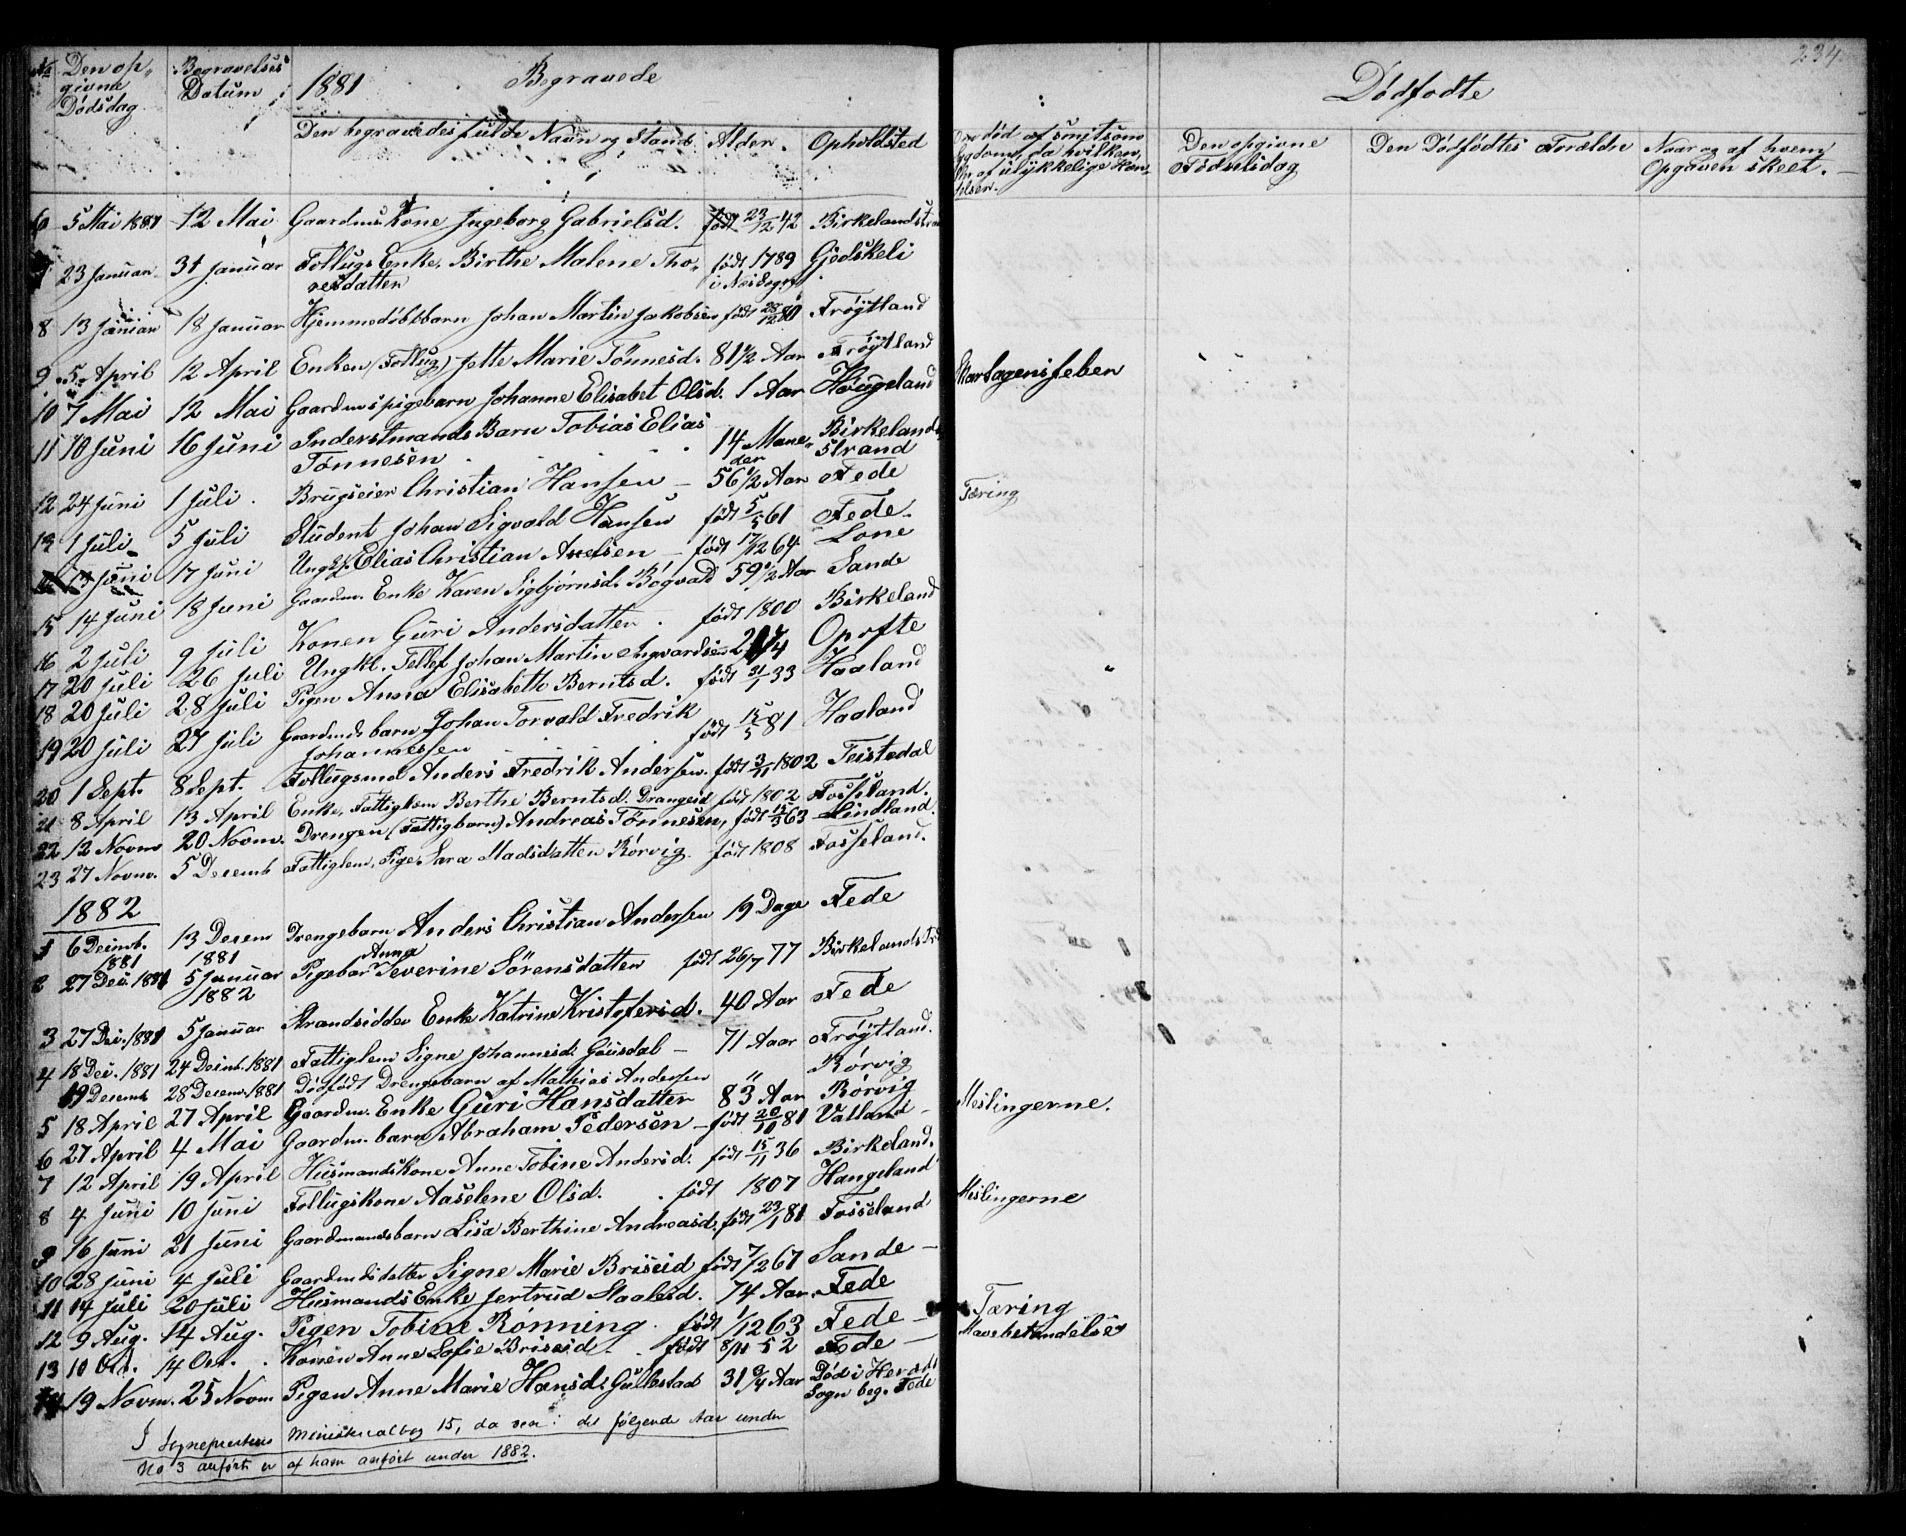 234
No Den op- Begravelses 1881 Begravede
givne Datum
Dødsdag
Den begravedes fulde Navn og Stand Alder. Opholdsted
Dødfødte
død af smitsom
Sygdom, da hvilken,
af ulykkelige Hæn-
delser.
Den opgivne
Fødselsdag
Den Dødfødtes Forældre
Naar og af hvem
Opgaven skeet.
6 5 Mai 1881 12 Mai Gaardms Kone Ingeborg Gabrielsd. født 23/12 42 Birkelandstrand
7 23 Januar 31 Januar Follugs Enke, Birthe Malene Tho- født 1789 Gjedskeli
resdatter
8 13 Januar 18 Januar Hjemmedøbtbarn Johan Martin Jakobsen født 28/12 80 Frøytland
9 5 April 12 April Enken (Follug) Jette Marie Tönnesd. 81 1/2 Aar Frøytland
10 7 Mai 12 Mai Gaardmspigebarn Johanne Elisabet Olsd. 1 Aar Haugeland
11 10 Juni 16 Juni Inderstmands Barn Tobias Elias 14 Maane- Birkelands
Tønnesen der strand
12 24 Juni 1 Juli. Brugseier Christian Hansen - 56 1/2 Aar Fede Tæring
13 1 Juli 5 Juli Student Johan Sigvald Hansen født 5/5 61 Fede.
13 Juni 17 Juni Ungk. Elias Christian Axelsen - født 17/12 64 Lone
15 14 Juni 18 Juni Gaardm. Enke Karen Sigbjørnsd. Bøgvad 59 1/2 Aar Sande
16 2 Juli 9 Juli Konen Guri Andersdatter. født 1800 Birkeland
17 20 Juli 26 Juli Ungkl. Tellef Johan Martin Ingvardsen Opofte
18 20 Juli 28 Juli Pigen Anna Elisabeth Berntsd. født 31/1 33 Haaland
19 20 Juli 27 Juli Gaardmdsbarn Johan Torvald Fredrik født 15/5 81 Haaland
Johannessen
20 1 Sept. 8 Sept. Follugsmd Anders Fredrik Andersen. født 3/11 1802 Teistedal
21 8 April 13 April Enke, Fattiglem Berthe Berntsd. Drangeid født 1802 Fosseland.
22 12 Novm 20 Novm. Drengen (Fattigbarn) Andreas Tønnesen, født 15/3 63 Lindland.
23 27 Novm. 5 Decemb Fattiglem, Pige Sara Madsdatter Rørvig født 1808 Fosseland.
1882
1 6 Decmb. 13 Decem Drengebarn Anders Christian Andersen 19 Dage Fede
1881 1881
2 27 Dec. 1881 5 Januar Pigebar Anna Severine Sörensdatter født 26/7 77 Birkelandstr
1882
3 27 Dec. 1881 5 Januar Strandsidder Enke Katrine Kristofersd. 40 Aar Fede
4 18 Dec. 1881 24 Decmb. 1881 Fattiglem Signe Johannesd. Gausdal - 71 Aaar Frøytland.
19 Decemb 28 Decem. 1881 Dødfødt Drengebarn af Mathias Andersen " Rørvig
5 18 April 27 April Gaardm. Enke Guri Hansdatter 83 Aar Rørvig
6 27 April 4 Mai Gaardm. barn Abraham Pedersen - født 20/10 81 Vatland - Meslingerne.
7 12 April 19 April Husmandskone Anne Tobine Andersd. født 15/11 36 Birkeland.
8 4 Juni 10 Juni Follugskone Aaselene Olsd. . født 1807 Haugeland
9 16 Juni 21 Juni Gaardmandsbarn Lisa Berthine Andreasd. født 23/1 81 Fosseland Meslingerne
10 28 Juni 4 Juli Gaardmdsdatter Signe Marie Briseid født 7/2 67 Sande -
11 14 Juli 20 Juli Husmands Enke Jertrud Staalesd. 74 Aar Fede
12 9 Aug. 14 Aug. Pigen Tobine Rønning. født 1/12 63 Fede - Tæring
13 10 Oct. 14 Oct. . Konen Anne Sofie Briseid. . født 8/11 52 Fede - Mavebetændelse
14 19 Novm. 25 Novm. Pigen Anne Marie Hansd. Gullestad 31 3/4 Aar Død i Herads
Sogn beg. Fede
I Sognepræstens Ministerialbog 15, da den i det følgende Aar under
No 3 anførte er af ham anført under 1882.